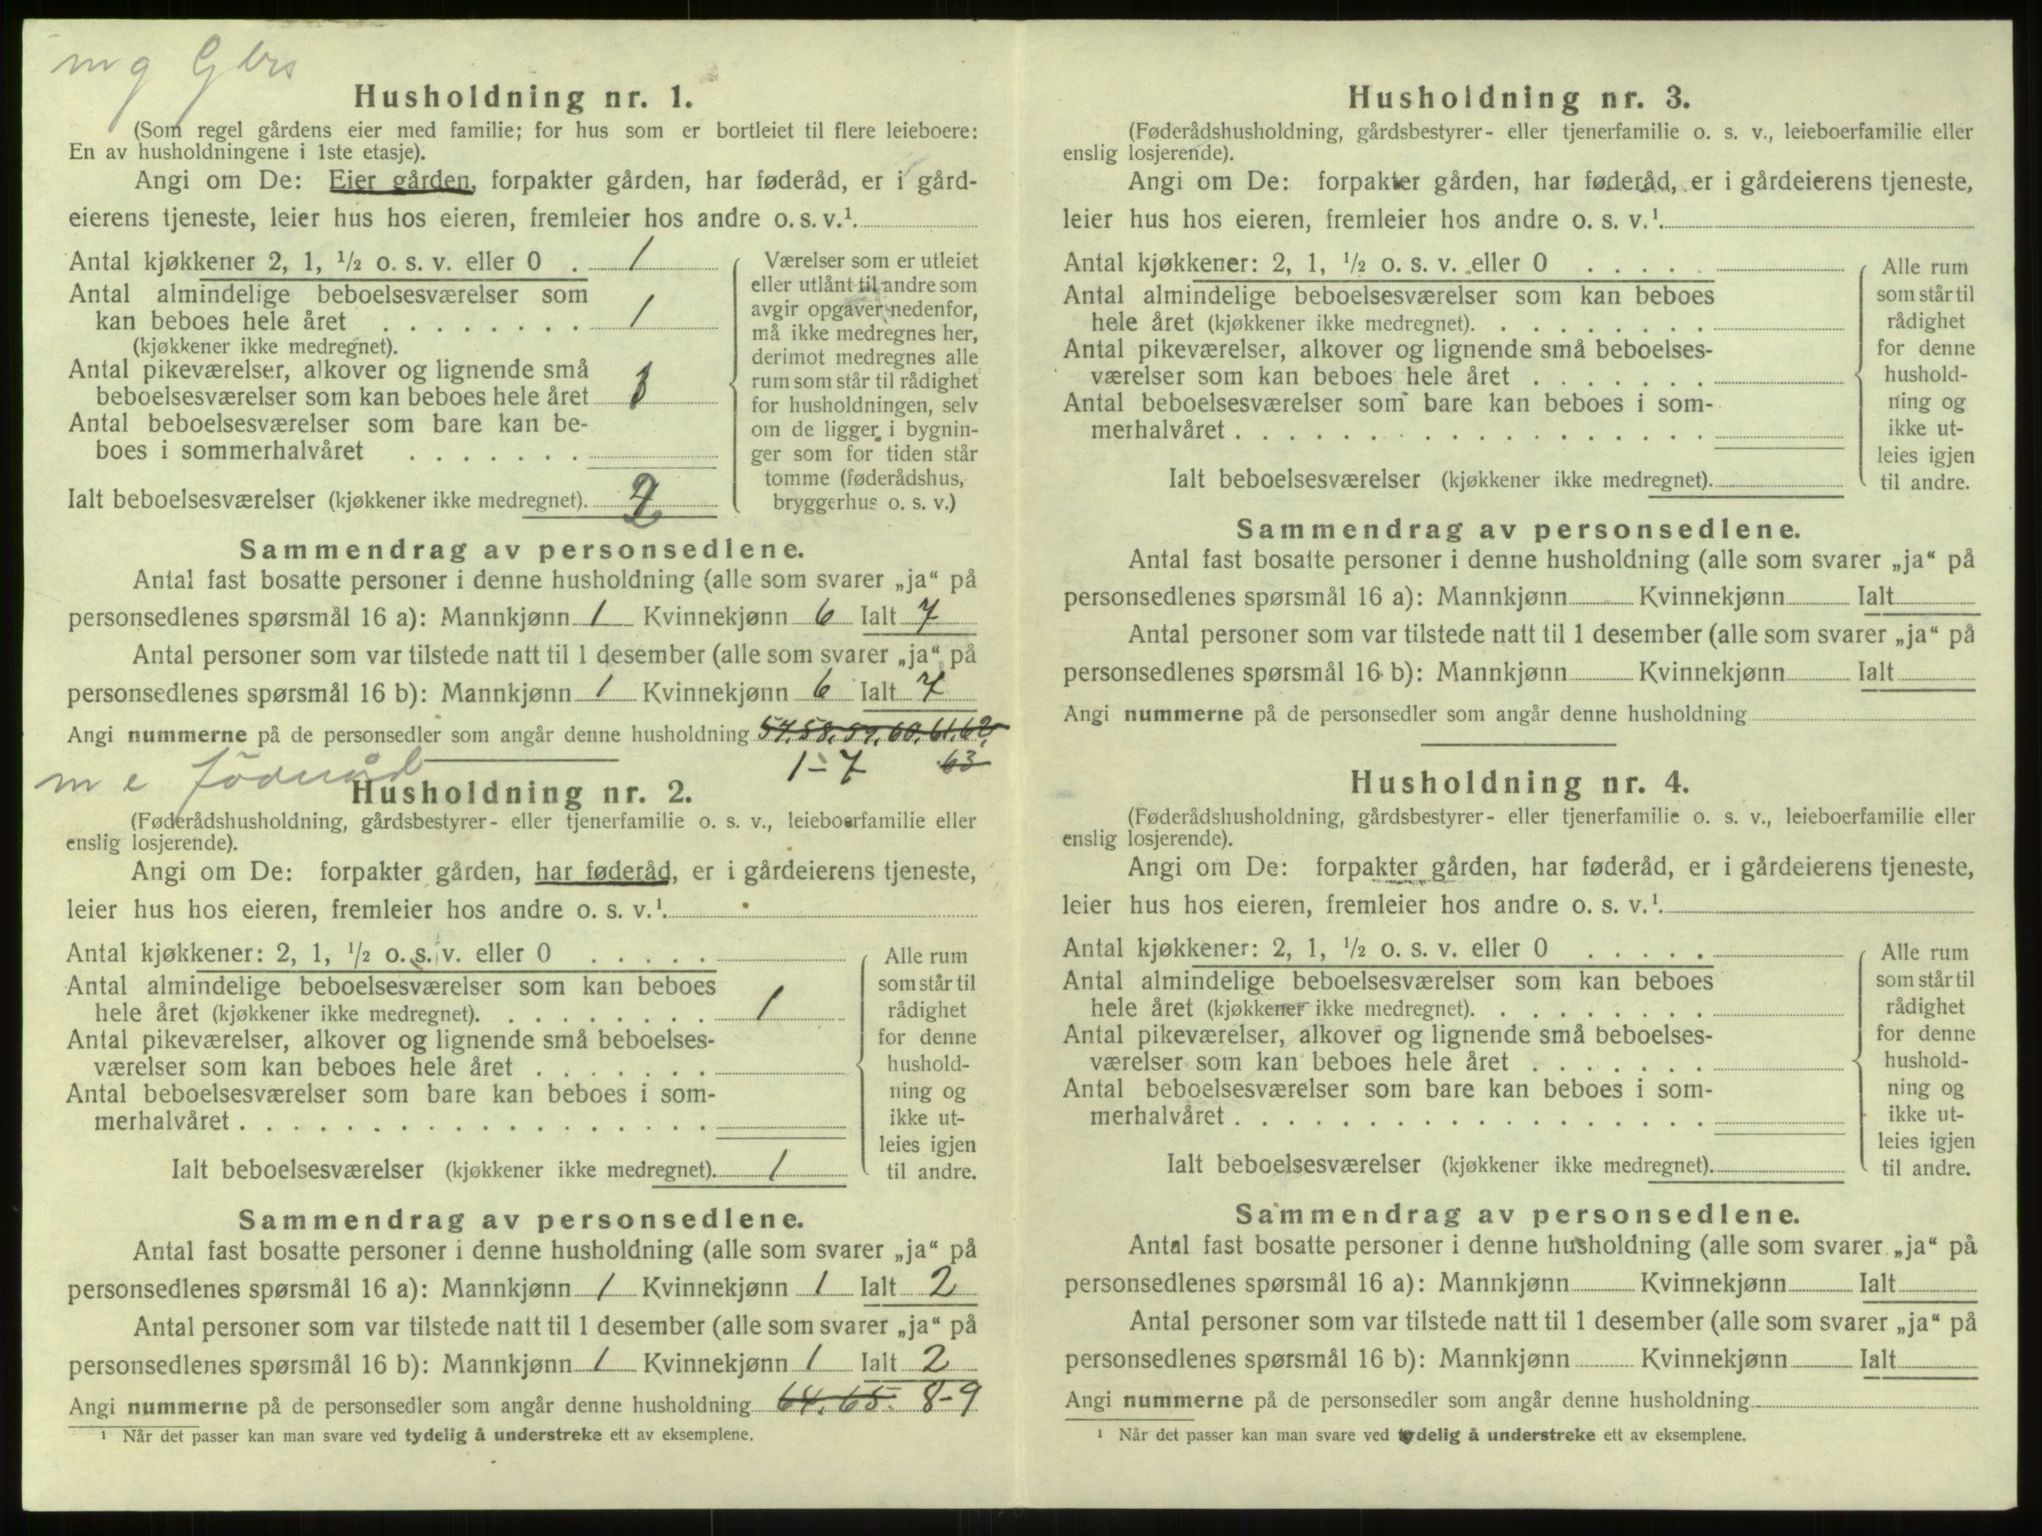 m g Gbrs
Husholdning nr. 1.
(Som regel gårdens eier med familie; for hus som er bortleiet til flere leieboere:
En av husholdningene i 1ste etasje).
Angi om De: Eier gården, forpakter gården, har føderåd, er i gård-
eierens tjeneste, leier hus hos eieren, fremleier hos andre o. s. v.¹
Antal kjøkkener 2, 1, ½ o. s. v. eller 0 . 1
Antal almindelige beboelsesværelser som
kan beboes hele året . . . . . . . . 1
(kjøkkener ikke medregnet).
Antal pikeværelser, alkover og lignende små
beboelsesværelser som kan beboes hele året 1
Antal beboelsesværelser som bare kan be-
boes i sommerhalvåret . . . . . . .
Ialt beboelsesværelser (kjøkkener ikke medregnet). 2
Værelser som er utleiet
eller utlånt til andre som
avgir opgaver nedenfor,
må ikke medregnes her,
derimot medregnes alle
rum som står til rådighet
for husholdningen, selv
om de ligger i bygnin-
ger som for tiden står
tomme (føderådshus,
bryggerhus o. s. v.)
Sammendrag av personsedlene.
Antal fast bosatte personer i denne husholdning (alle som svarer „ja“ på
personsedlenes spørsmål 16 a): Mannkjønn 1 Kvinnekjønn 6 Ialt 7
Antal personer som var tilstede natt til 1 desember (alle som svarer „ja“ på
personsedlenes spørsmål 16 b): Mannkjønn 1 Kvinnekjønn 6 Ialt 7
Angi nummerne på de personsedler som angår denne husholdning 57, 58, 59, 60, 61, 62,
1-7 63
m e föderåd
Husholdning nr. 2.
(Føderådshusholdning, gårdsbestyrer- eller tjenerfamilie o. s. v., leieboerfamilie eller
enslig losjerende).
Angi om De: forpakter gården, har føderåd, er i gårdeierens tjeneste,
leier hus hos eieren, fremleier hos andre o. s. v.¹
Antal kjøkkener: 2, 1, ½ o. s. v. eller 0 . . . . .
Antal almindelige beboelsesværelser som kan beboes
hele året (kjøkkener ikke medregnet). . . . . . . . . 1
Antal pikeværelser, alkover og lignende små beboelses-
værelser som kan beboes hele året . . . . . . .
Antal beboelsesværelser som bare kan beboes i som-
merhalvåret . . . . . . . . . . . . . . . . . .
Ialt beboelsesværelser (kjøkkener ikke medregnet). 1
Alle rum
som står til
rådighet
for denne
hushold-
ning og
ikke ut-
leies igjen
til andre.
Sammendrag av personsedlene.
Antal fast bosatte personer i denne husholdning (alle som svarer „ja“ på
personsedlenes spørsmål 16 a): Mannkjønn 1 Kvinnekjønn 1 Ialt 2
Antal personer som var tilstede natt til 1 desember (alle som svarer „ja“ på
personsedlenes spørsmål 16 b): Mannkjønn 1 Kvinnekjønn 1 Ialt 2
Angi nummerne på de personsedler som angår denne husholdning 64, 65. 8-9
¹ Når det passer kan man svare ved tydelig å understreke ett av eksemplene.
Husholdning nr. 3.
(Føderådshusholdning, gårdsbestyrer- eller tjenerfamilie o. s. v., leieboerfamilie eller
enslig losjerende).
Angi om De: forpakter gården, har føderåd, er i gårdeierens tjeneste,
leier hus hos eieren, fremleier hos andre o. s. v.¹
Antal kjøkkener: 2, 1, ½ o. s. v. eller 0 . . . . .
Antal almindelige beboelsesværelser som kan beboes
hele året (kjøkkener ikke medregnet). . . . . . . . .
Antal pikeværelser, alkover og lignende små beboelses-
værelser som kan beboes hele året . . . . . . .
Antal beboelsesværelser som bare kan beboes i som-
merhalvåret . . . . . . . . . . . . . . . . . .
Ialt beboelsesværelser (kjøkkener ikke medregnet).
Alle rum
som står til
rådighet
for denne
hushold-
ning og
ikke ut-
leies igjen
til andre.
Sammendrag av personsedlene.
Antal fast bosatte personer i denne husholdning (alle som svarer „ja“ på
personsedlenes spørsmål 16 a): Mannkjønn Kvinnekjønn Ialt
Antal personer som var tilstede natt til 1 desember (alle som svarer „ja“ på
personsedlenes spørsmål 16 b): Mannkjønn Kvinnekjønn Ialt
Angi nummerne på de personsedler som angår denne husholdning
Husholdning nr. 4.
(Føderådshusholdning, gårdsbestyrer- eller tjenerfamilie o. s. v., leieboerfamilie eller
enslig losjerende).
Angi om De: forpakter gården, har føderåd, er i gårdeierens tjeneste,
leier hus hos eieren, fremleier hos andre o. s. v.¹
Antal kjøkkener: 2, 1, ½ o. s. v. eller 0 . . . . .
Antal almindelige beboelsesværelser som kan beboes
hele året (kjøkkener ikke medregnet). . . . . . . . .
Antal pikeværelser, alkover og lignende små beboelses-
værelser som kan beboes hele året . . . . . . .
Antal beboelsesværelser som bare kan beboes i som-
merhalvåret . . . . . . . . . . . . . . . . . .
Ialt beboelsesværelser (kjøkkener ikke medregnet).
Alle rum
som står til
rådighet
for denne
hushold-
ning og
ikke ut-
leies igjen
til andre.
Sammendrag av personsedlene.
Antal fast bosatte personer i denne husholdning (alle som svarer „ja“ på
personsedlenes spørsmål 16 a): Mannkjønn Kvinnekjønn Ialt
Antal personer som var tilstede natt til 1 desember (alle som svarer „ja“ på
personsedlenes spørsmål 16 b): Mannkjønn Kvinnekjønn Ialt
Angi nummerne på de personsedler som angår denne husholdning
¹ Når det passer kan man svare ved tydelig å understreke ett av eksemplene.